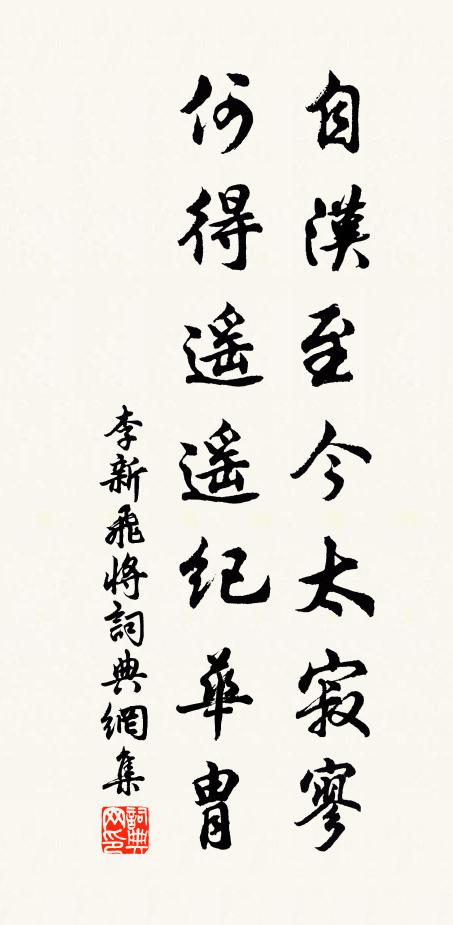 自漢至今太寂寥
何得遥遥紀華胄
李新飛將詞典網集
詞典
网印